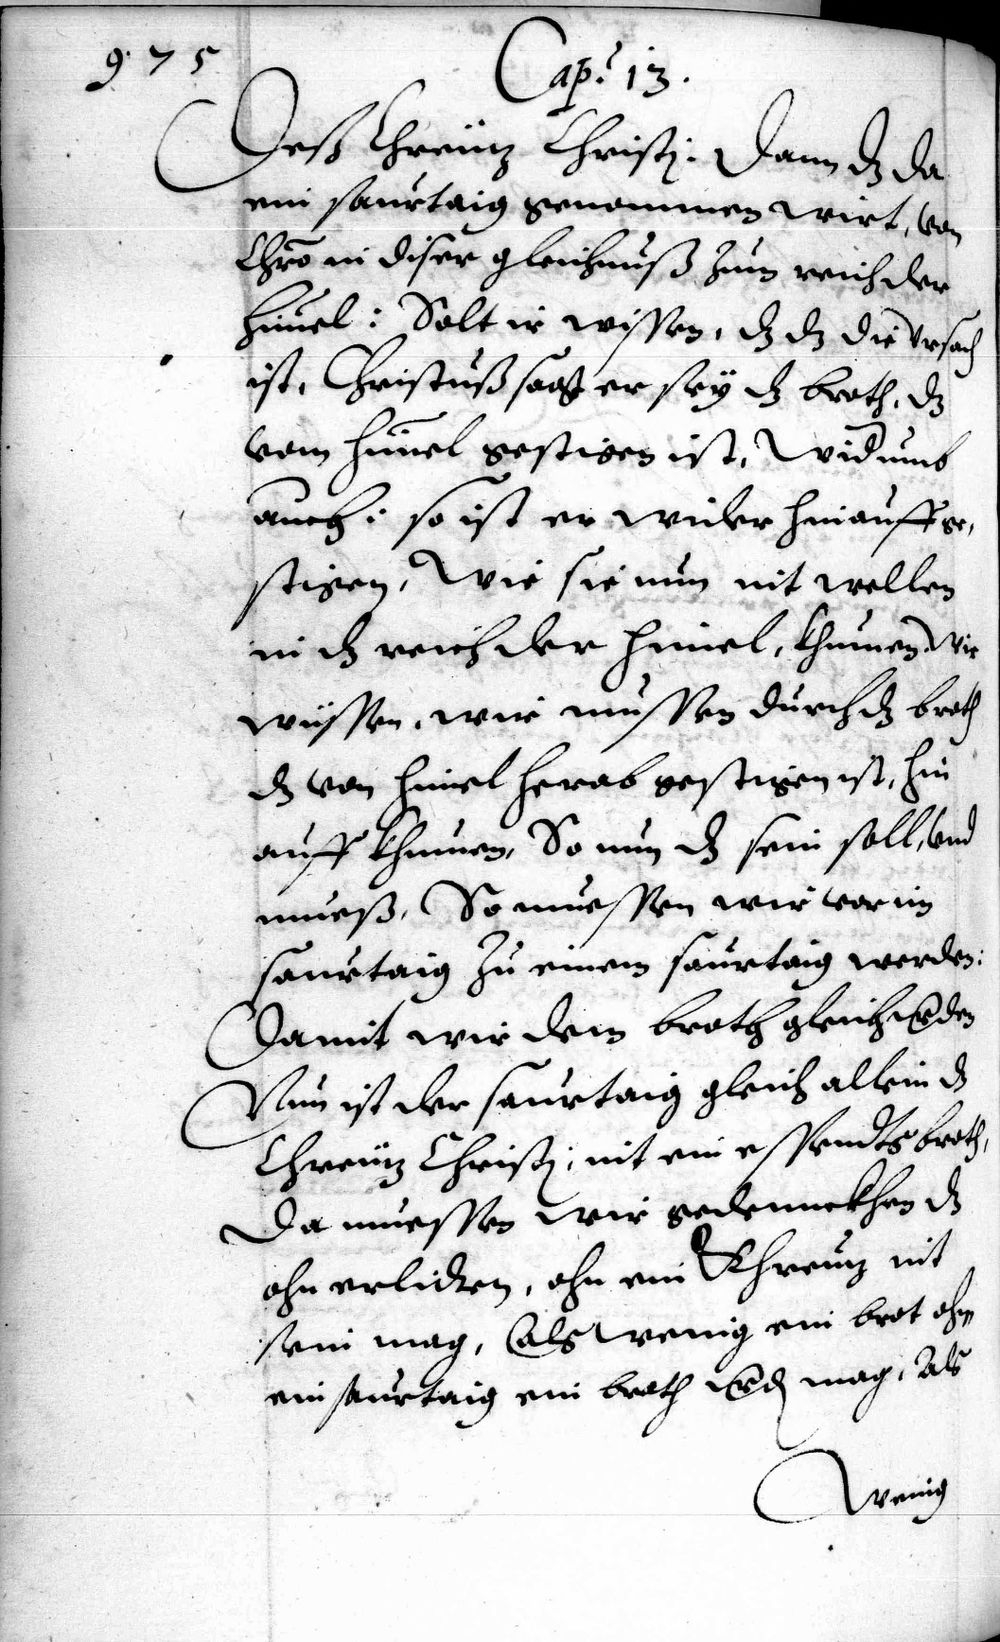 975 Cap: 13.
Deß Chreütz Christj. Dann dz da
ein saurtaig genommen wirt, von
Chro in diser gleichnuß zum reich der
himel: Solt ir wissen, dz dz die Vrsach
ist, Christuß sagt er seÿ dz broth, dz
vom himel gestigen ist, Widumb
auch: so ist er wider hinauff ge,
stigen, Wie sie nun nit wellen
in dz reich der himel, khumen. Wir
wüssen, wir mussen durch dz broth
dz von himel herab gestigen ist, hin
auff khumen, So nun dz sein soll, vnd
mueß, So muessen wir vor im
saurtaig zu einem saurtaig werden:
Damit wir dem broth gleich werden
Nun ist der saurtaig gleich allein dz
Chreütz Christj, nit ein essendts broth,
Da muessen wir gedennckhen dz
ohn erliden, ohn ein Khreutz nit
sein mag, Als wenig ein brot ohn
ein saurtaig ein broth werden mag, Als
Wenig